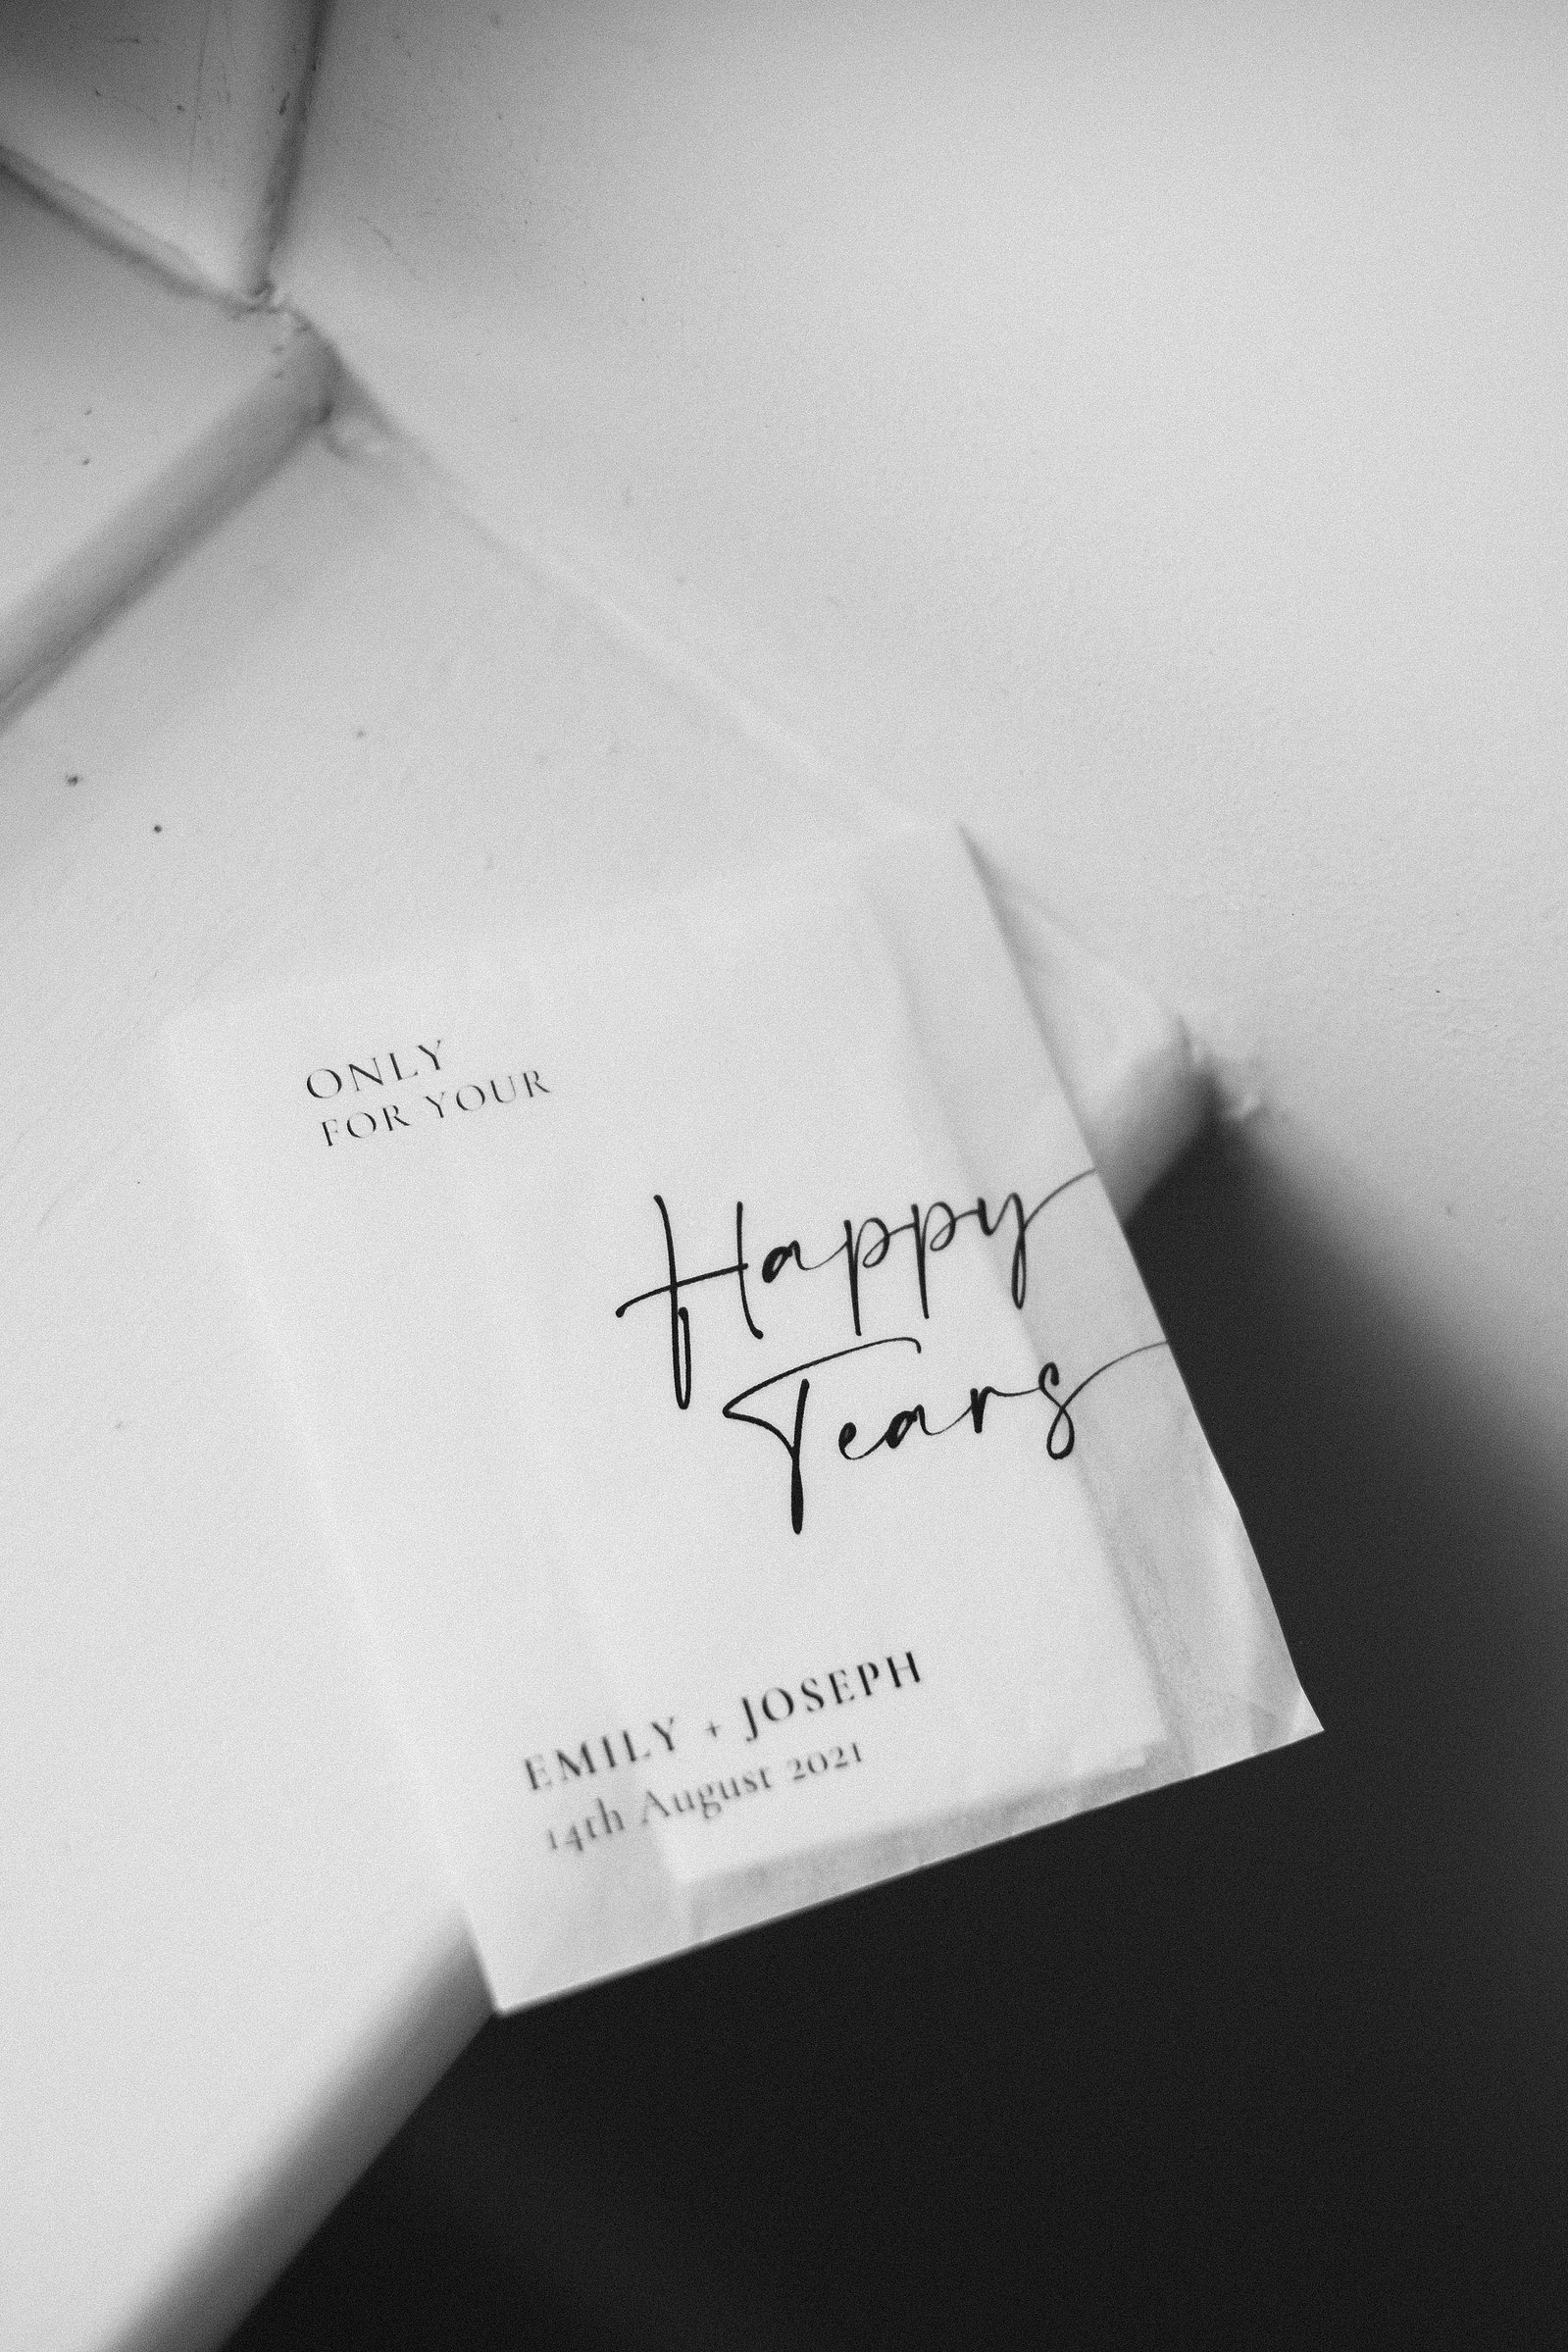 ONLY
FOR YOUR
Happy
Tears
EMILY + JOSEPH
14th August 2021